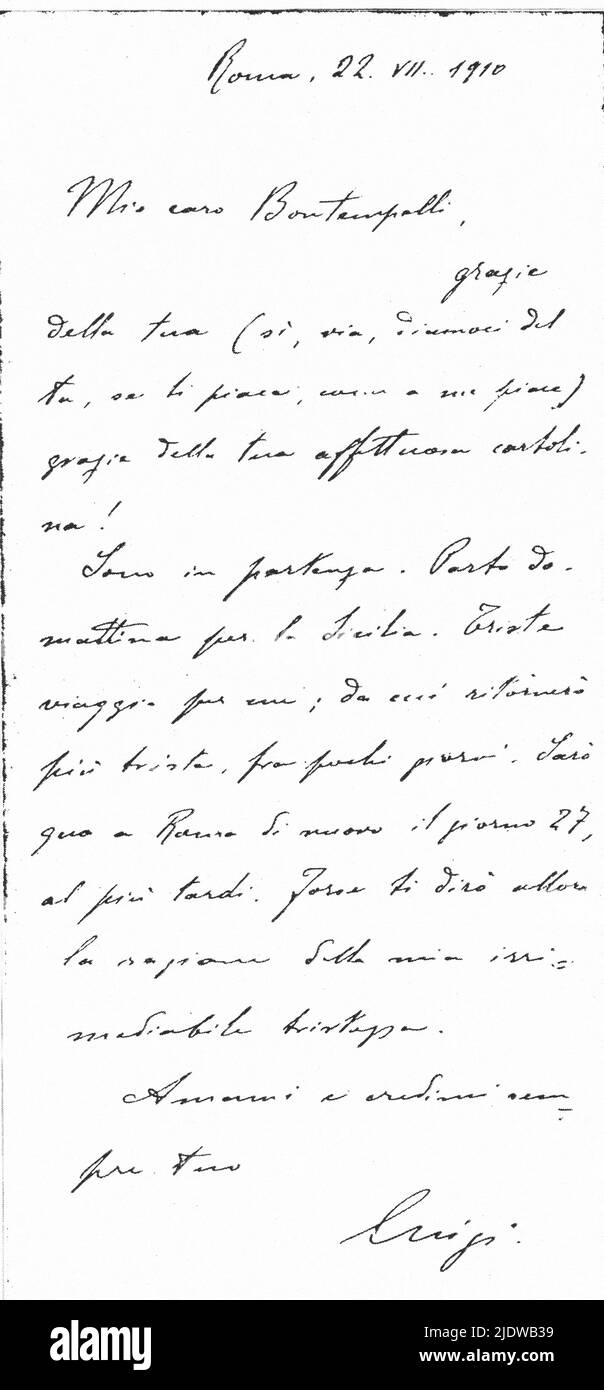 Roma, 22. VII. 1910
Mio caro Bontempelli,
grazie
della tua (sì, via, diamoci del
tu, se ti piace, come a me piace)
grazie della tua affettuosa cartoli-
na!
Sono in partenza. Parto do-
mattina per la Sicilia. Triste
viaggio per me; da cui ritornerò
più triste, fra pochi giorni. Sarò
qua a Roma di nuovo il giorno 27,
al più tardi. Forse ti dirò allora
la ragione della mia irri=
mediabile tristezza.
Amami e credimi sem
pre tuo
Luigi.
alamy
Image ID: 2JDWB39
www.alamy.com